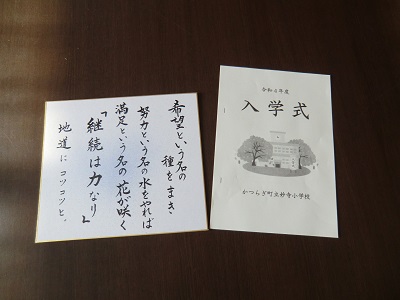 希望という名の
種をまき
努力という名の水をやれば
満足という名の花が咲く
「継続は力なり」
地道にコツコツと、
令和4年度
入学式
かつらぎ町立妙寺小学校